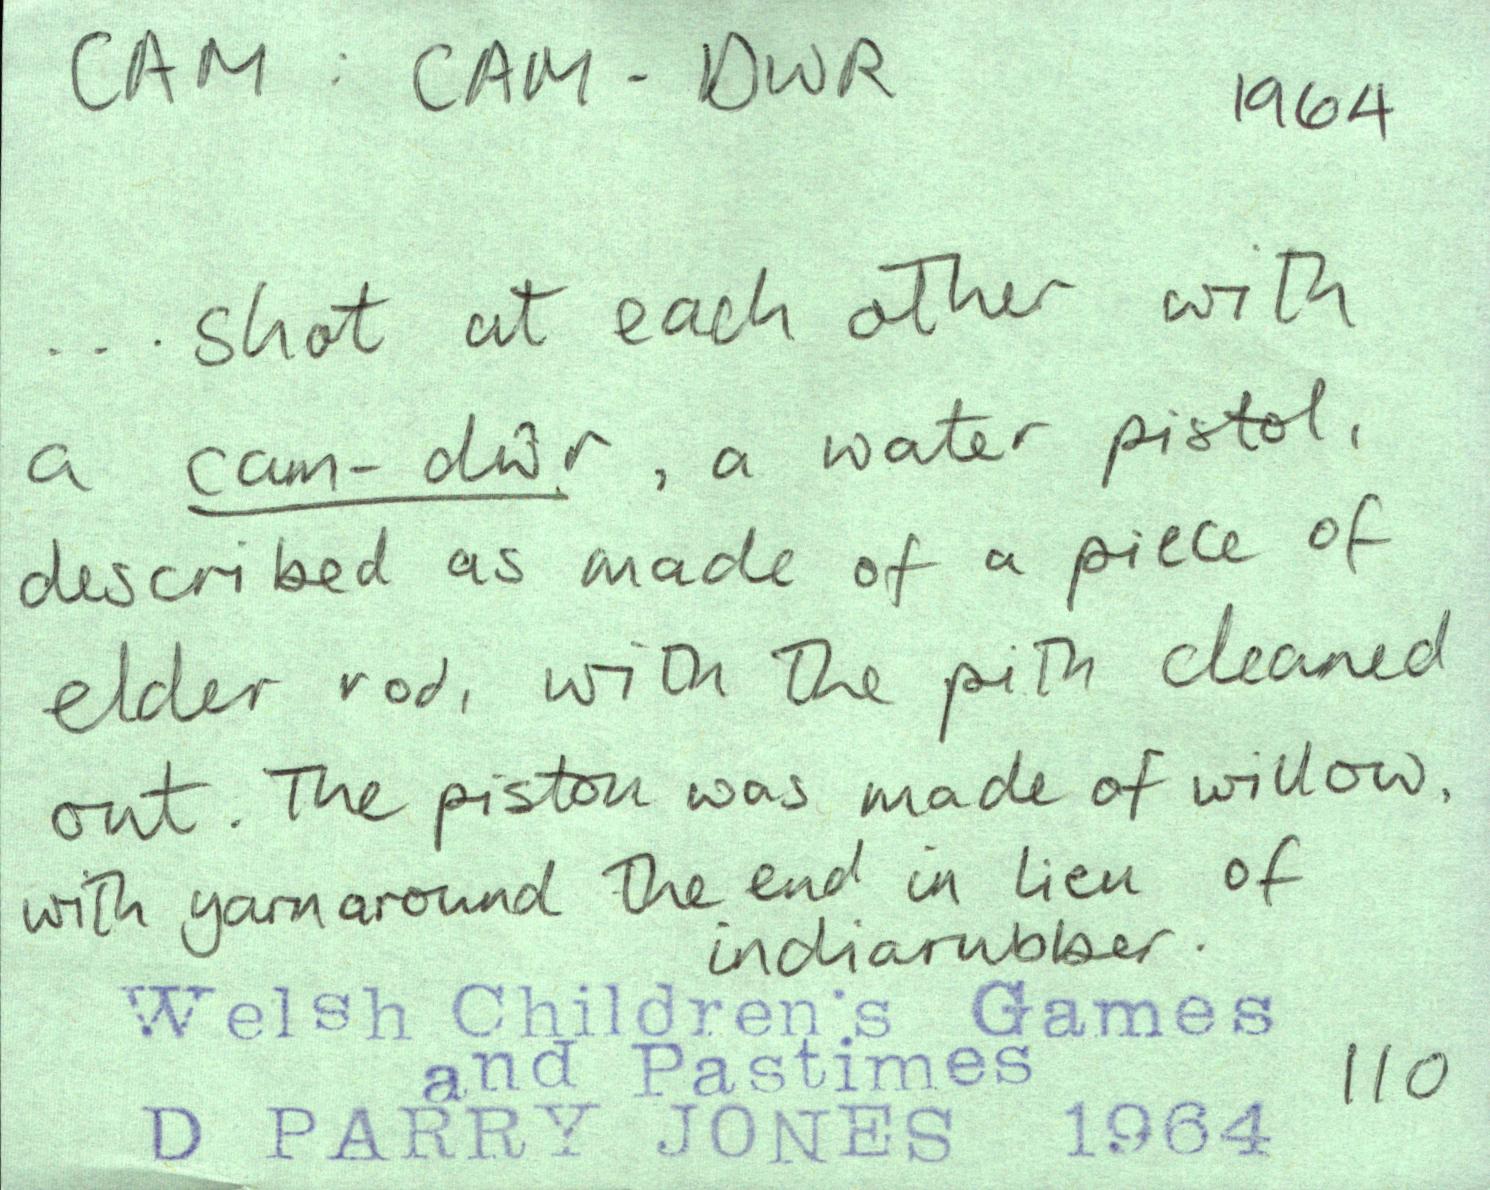 CAM : CAM - DWR
1964
... shot at each other with
a cam-dŵr, a water pistol,
described as made of a piece of
elder rod, with the pith cleaned
out. The piston was made of willow,
with yarn around the end in lieu of
indiarubber.
Welsh Children's Games
and Pastimes
D PARRY JONES 1964
110